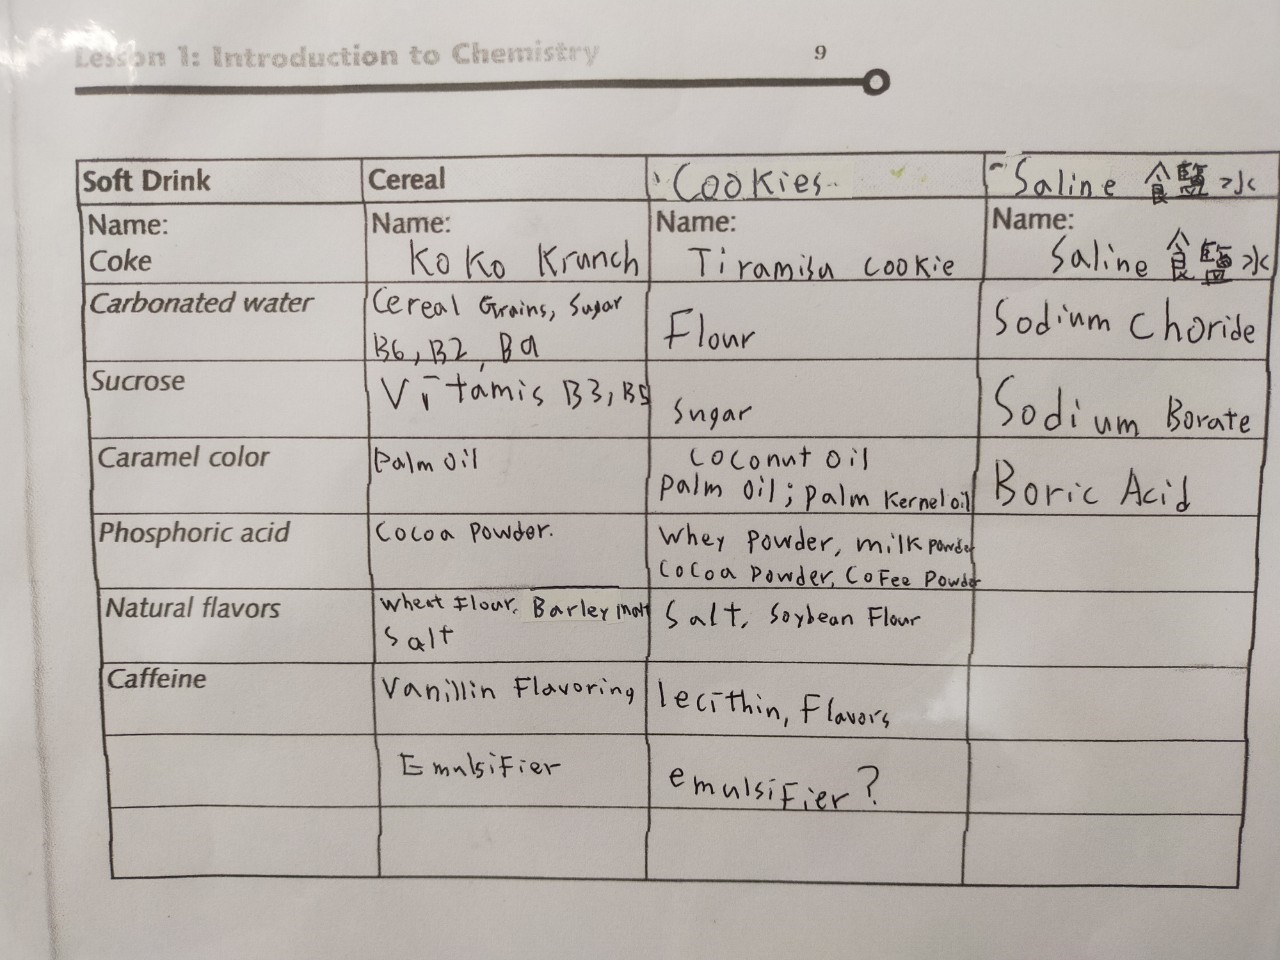 Lesson 1: Introduction to Chemistry 9
Soft Drink Cereal Cookies. Saline 食鹽水
Name: Name: Name: Name:
Coke Ko Ko Krunch Tiramisu cookie Saline 食鹽水
Carbonated water Cereal Grains, Sugar Flour Sodium Choride
B6, B2, B9
Sucrose Vitamis B3, B5 Sugar Sodium Borate
Caramel color Palm Oil Coconut Oil Boric Acid
Palm Oil; Palm Kernel oil
Phosphoric acid Cocoa Powder. Whey Powder, milk powder
Cocoa Powder, Cofee Powder
Natural flavors Wheat Flour, Barley malt Salt, Soybean Flour
Salt
Caffeine Vanillin Flavoring lecithin, Flavors
Emulsifier emulsifier?